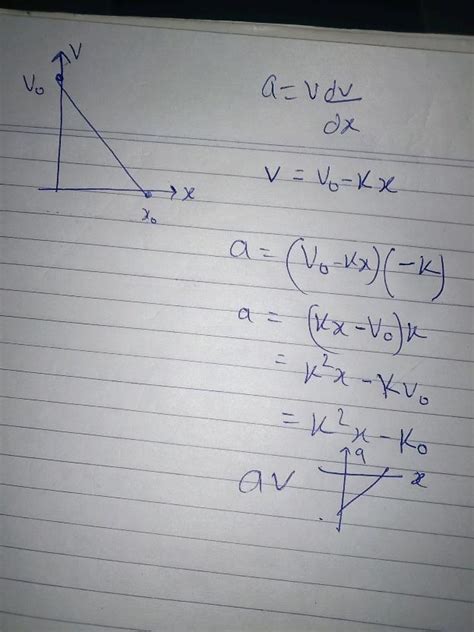 V
V₀
x
x₀
a = v dv/dx
V = V₀ - Kx
a = (V₀ - Kx)(-K)
a = (Kx - V₀)K
= K²x - KV₀
= K²x - K₀
a
x